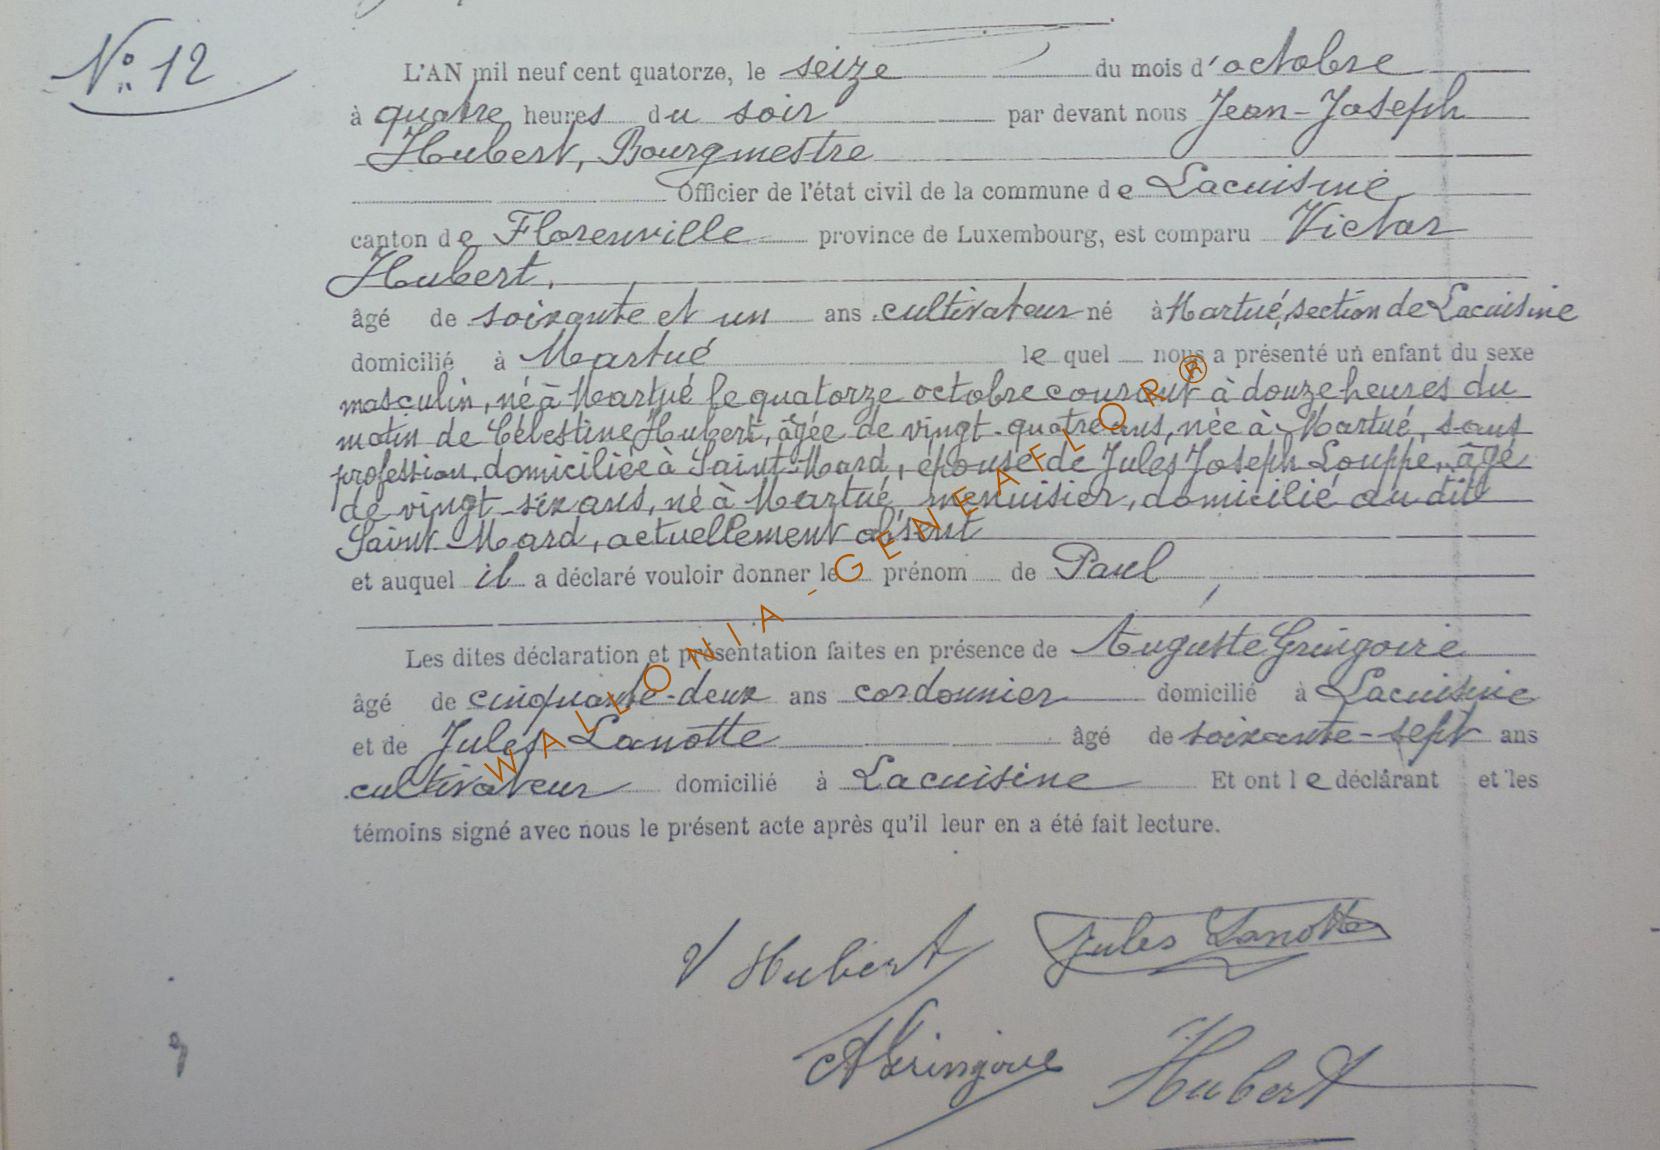 N° 12
L'AN mil neuf cent quatorze, le seize du mois d'octobre
à quatre heures du soir par devant nous Jean-Joseph
Hubert, Bourgmestre
Officier de l'état civil de la commune de Lacuisine
canton de Florenville province de Luxembourg, est comparu Victor
Hubert,
âgé de soixante et un ans cultivateur né à Martué, section de Lacuisine
domicilié à Martué lequel nous a présenté un enfant du sexe
masculin, né à Martué le quatorze octobre courant à douze heures du
matin de Célestine Hubert, âgée de vingt-quatre ans, née à Martué, sans
profession, domiciliée à Saint-Mard, épouse de Jules Joseph Louppe, âgé
de vingt-six ans, né à Martué, menuisier, domicilié au dit
Saint-Mard, actuellement absent
et auquel il a déclaré vouloir donner le prénom de Paul
Les dites déclaration et présentation faites en présence de Auguste Gringoire
âgé de cinquante-deux ans cordonnier domicilié à Lacuisine
et de Jules Lanotte âgé de soixante-sept ans
cultivateur domicilié à Lacuisine Et ont le déclarant et les
témoins signé avec nous le présent acte après qu'il leur en a été fait lecture.
V Hubert Jules Lanotte
A Gringoire Hubert
WALLONIA-GENEAFLOR®